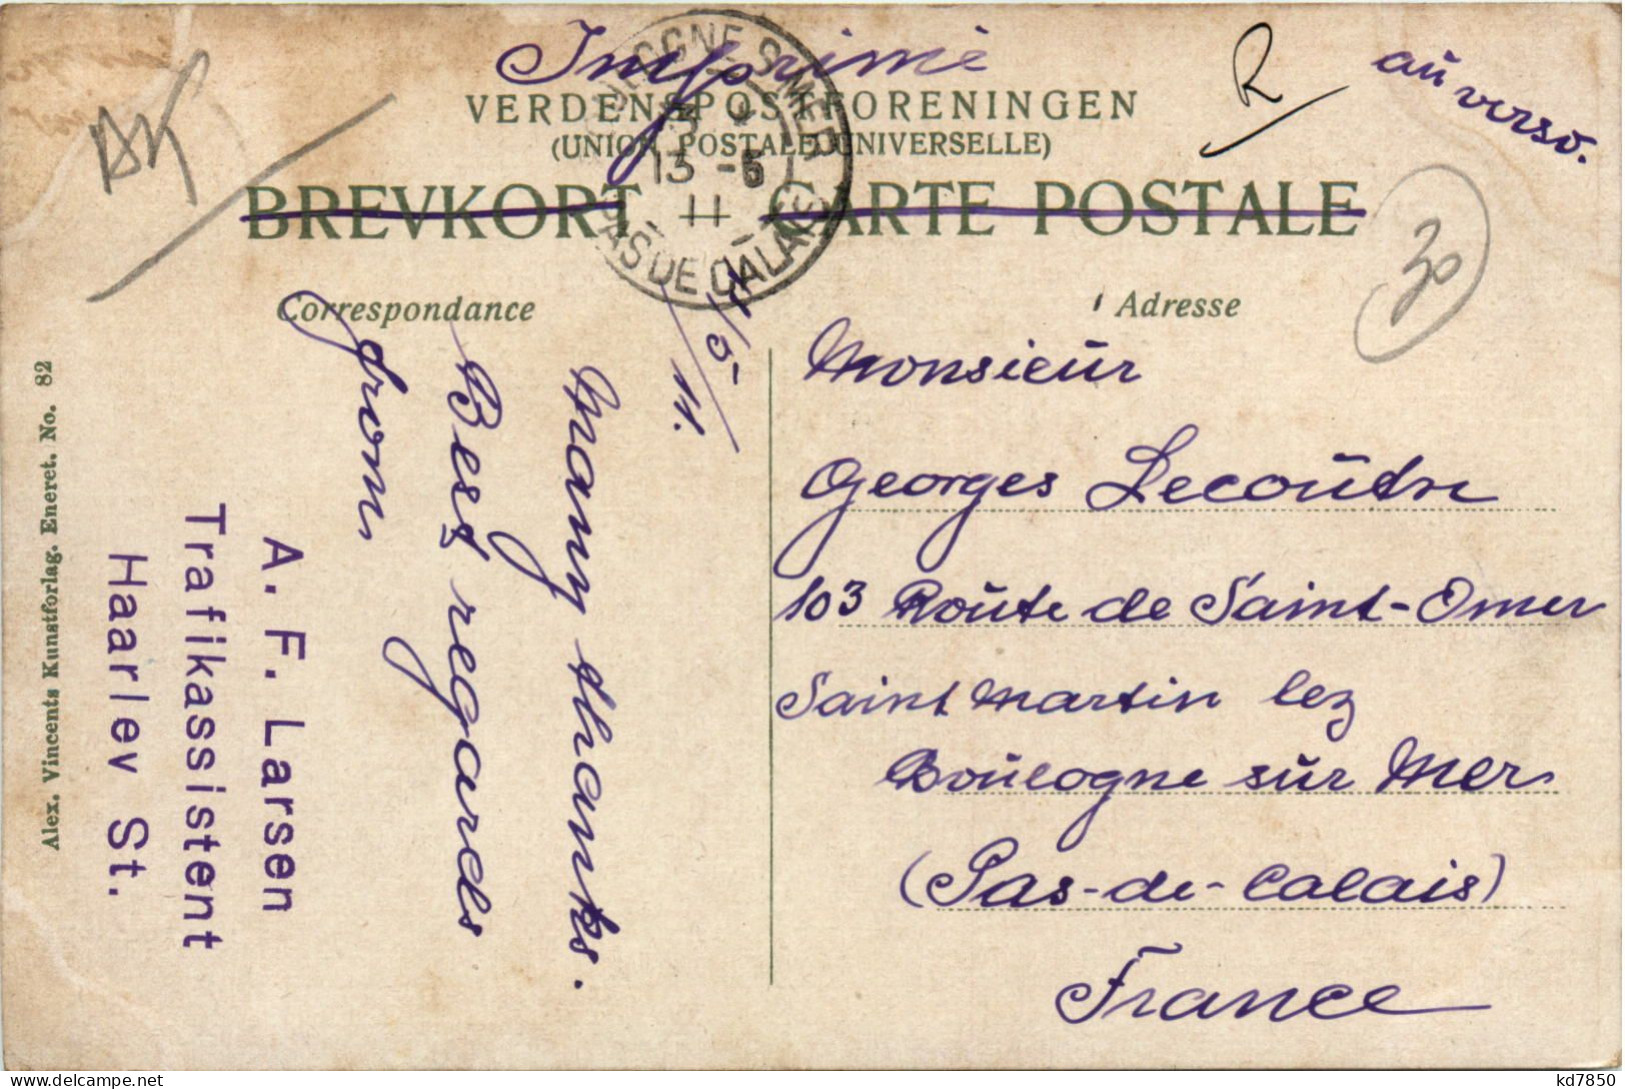 Imprimé
au verso.
R
VERDENSPOSTFORENINGEN
(UNION POSTALE UNIVERSELLE)
BREVKORT — CARTE POSTALE
BOULOGNE S-MER
13 -5
11
PAS DE CALAIS
30
Correspondance
Adresse
11/5-11.
Many thanks.
Best regards
from
A. F. Larsen
Trafikassistent
Haarlev St.
Alex. Vincents Kunstforlag. Eneret. No. 82
Monsieur
Georges Lecoutre
103 Route de Saint-Omer
Saint Martin lez
Boulogne sur Mer
(Pas-de-Calais)
France
kd7850